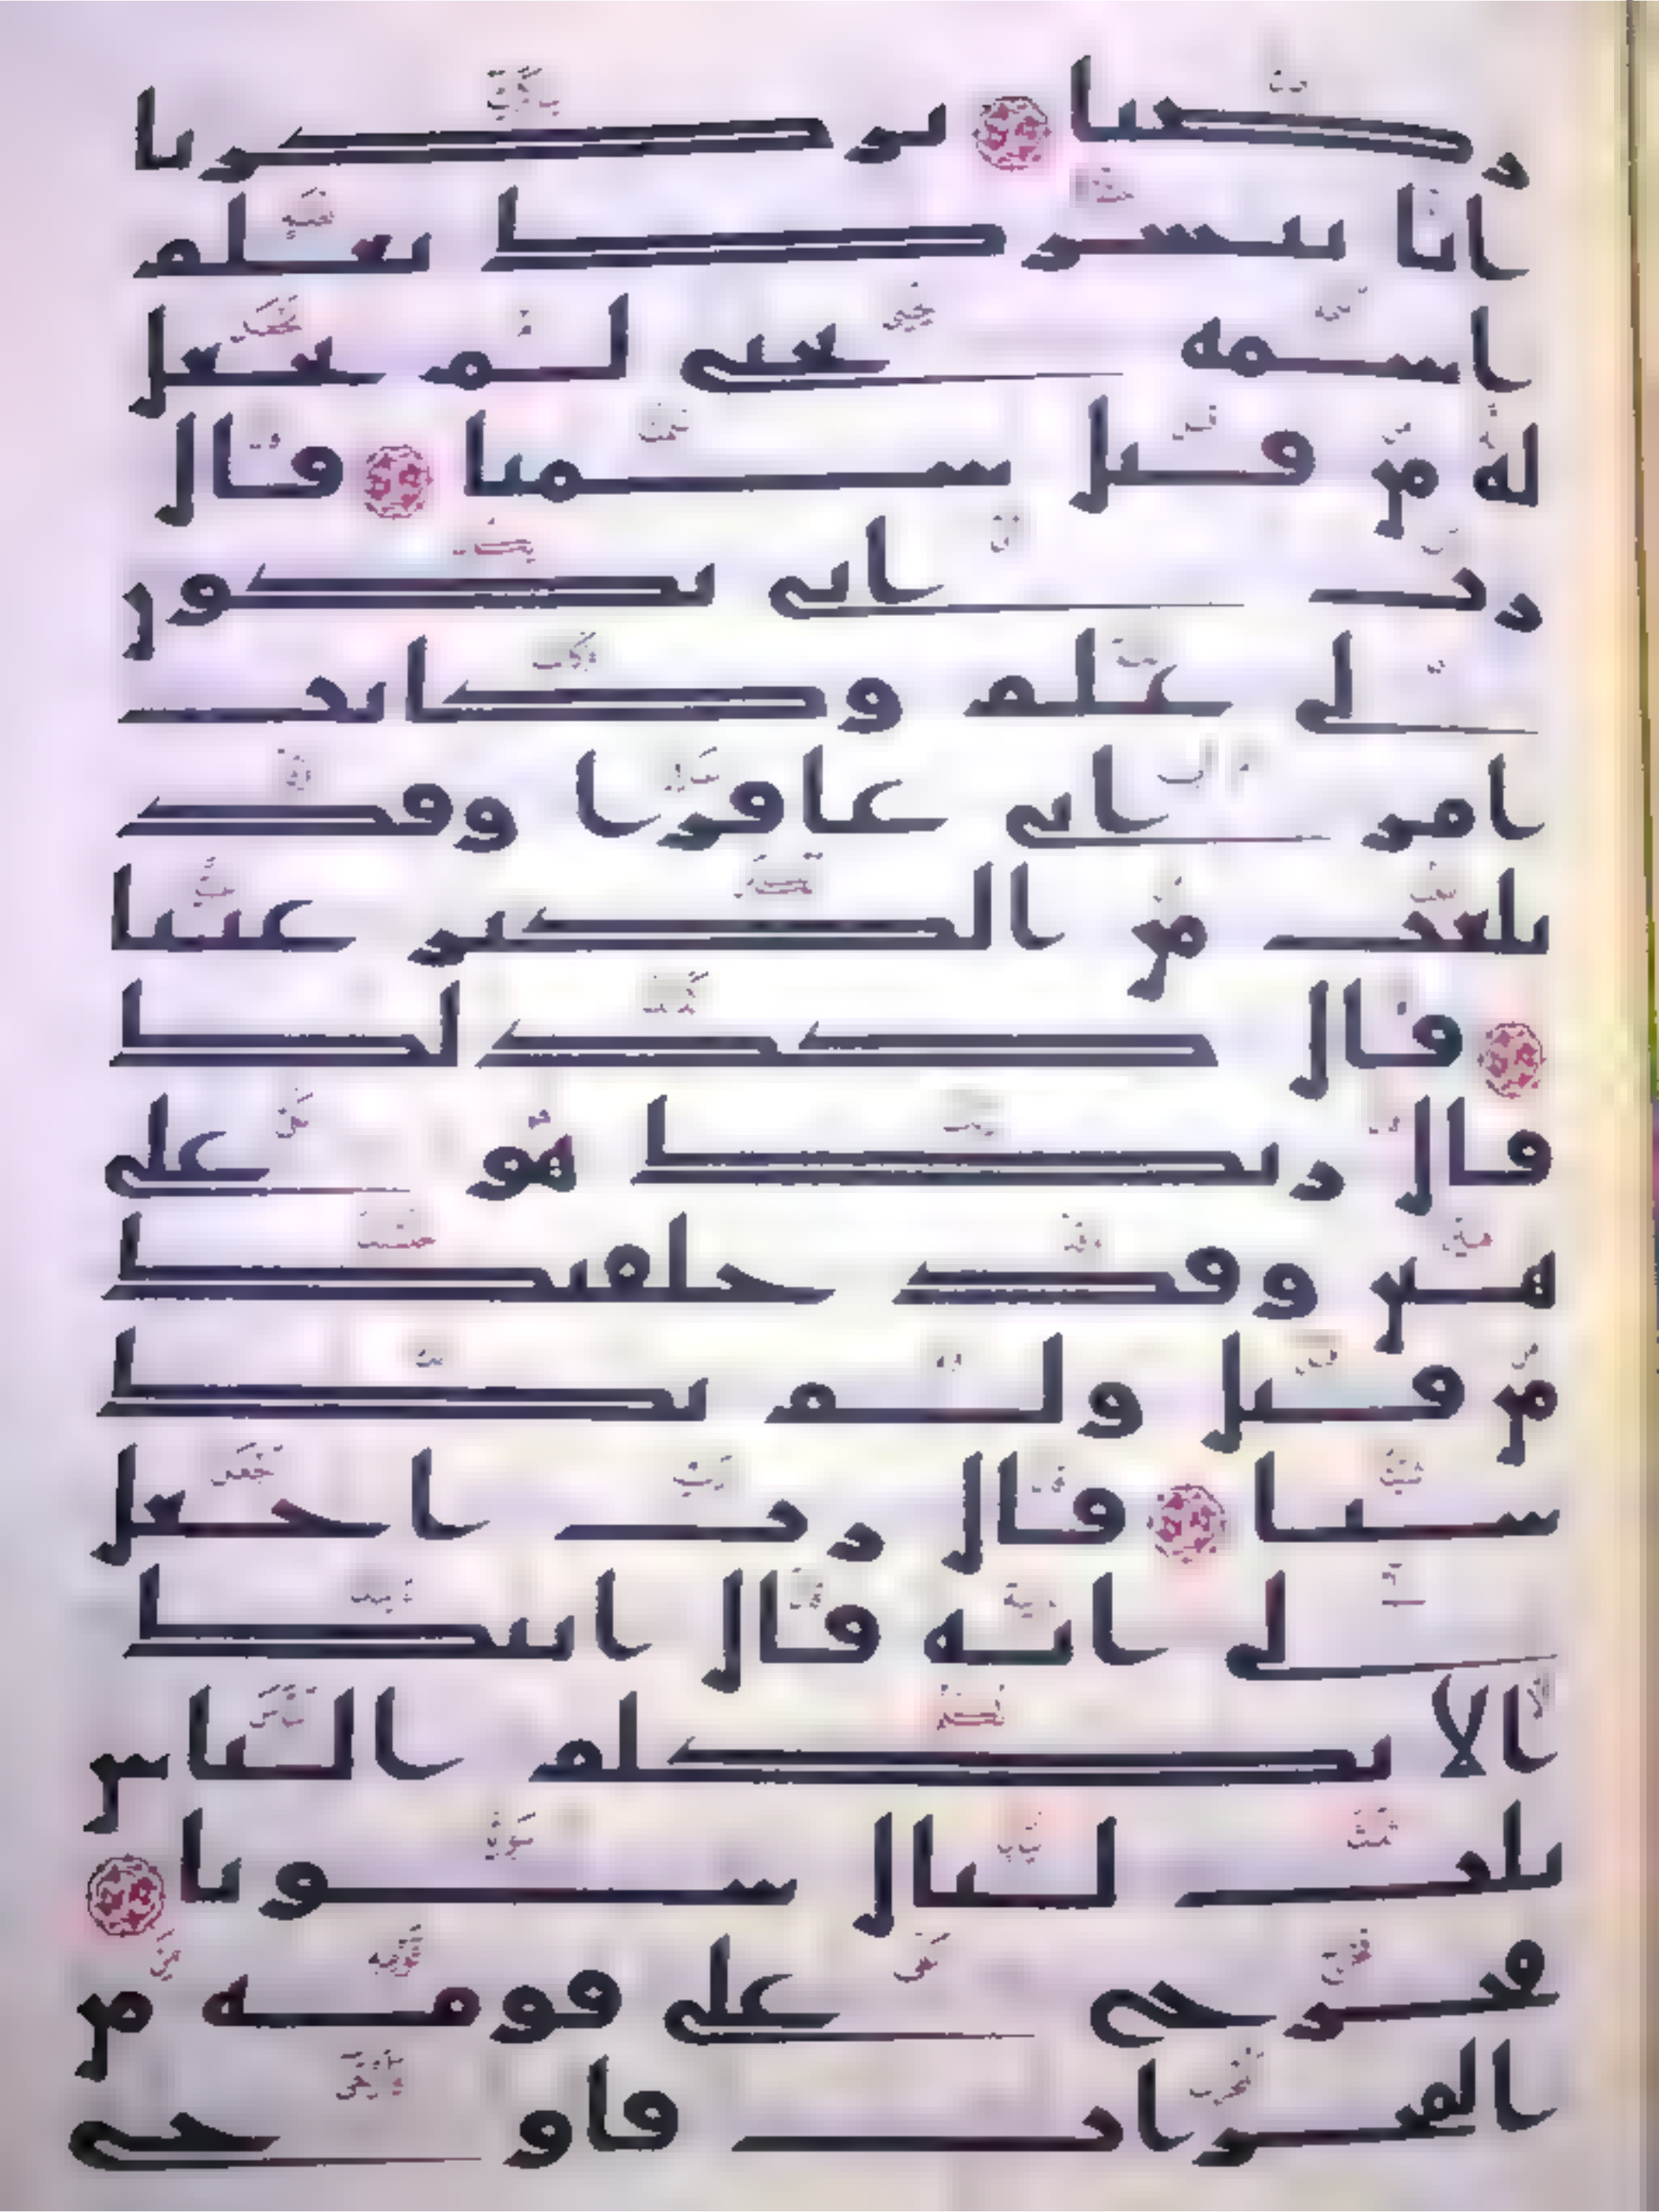 رضيا يزكريا
انا نبشرك بغلم
اسمه يحيى لم نجعل
له من قبل سميا قال
رب انى يكون
لى غلم وكانت
امراتى عاقرا وقد
بلغت من الكبر عتيا
قال كذلك
قال ربك هو على
هين وقد خلقتك
من قبل ولم تك
شيا قال رب اجعل
لى اية قال ايتك
الا تكلم الناس
ثلث ليال سويا
فخرج على قومه من
المحراب فاوحى